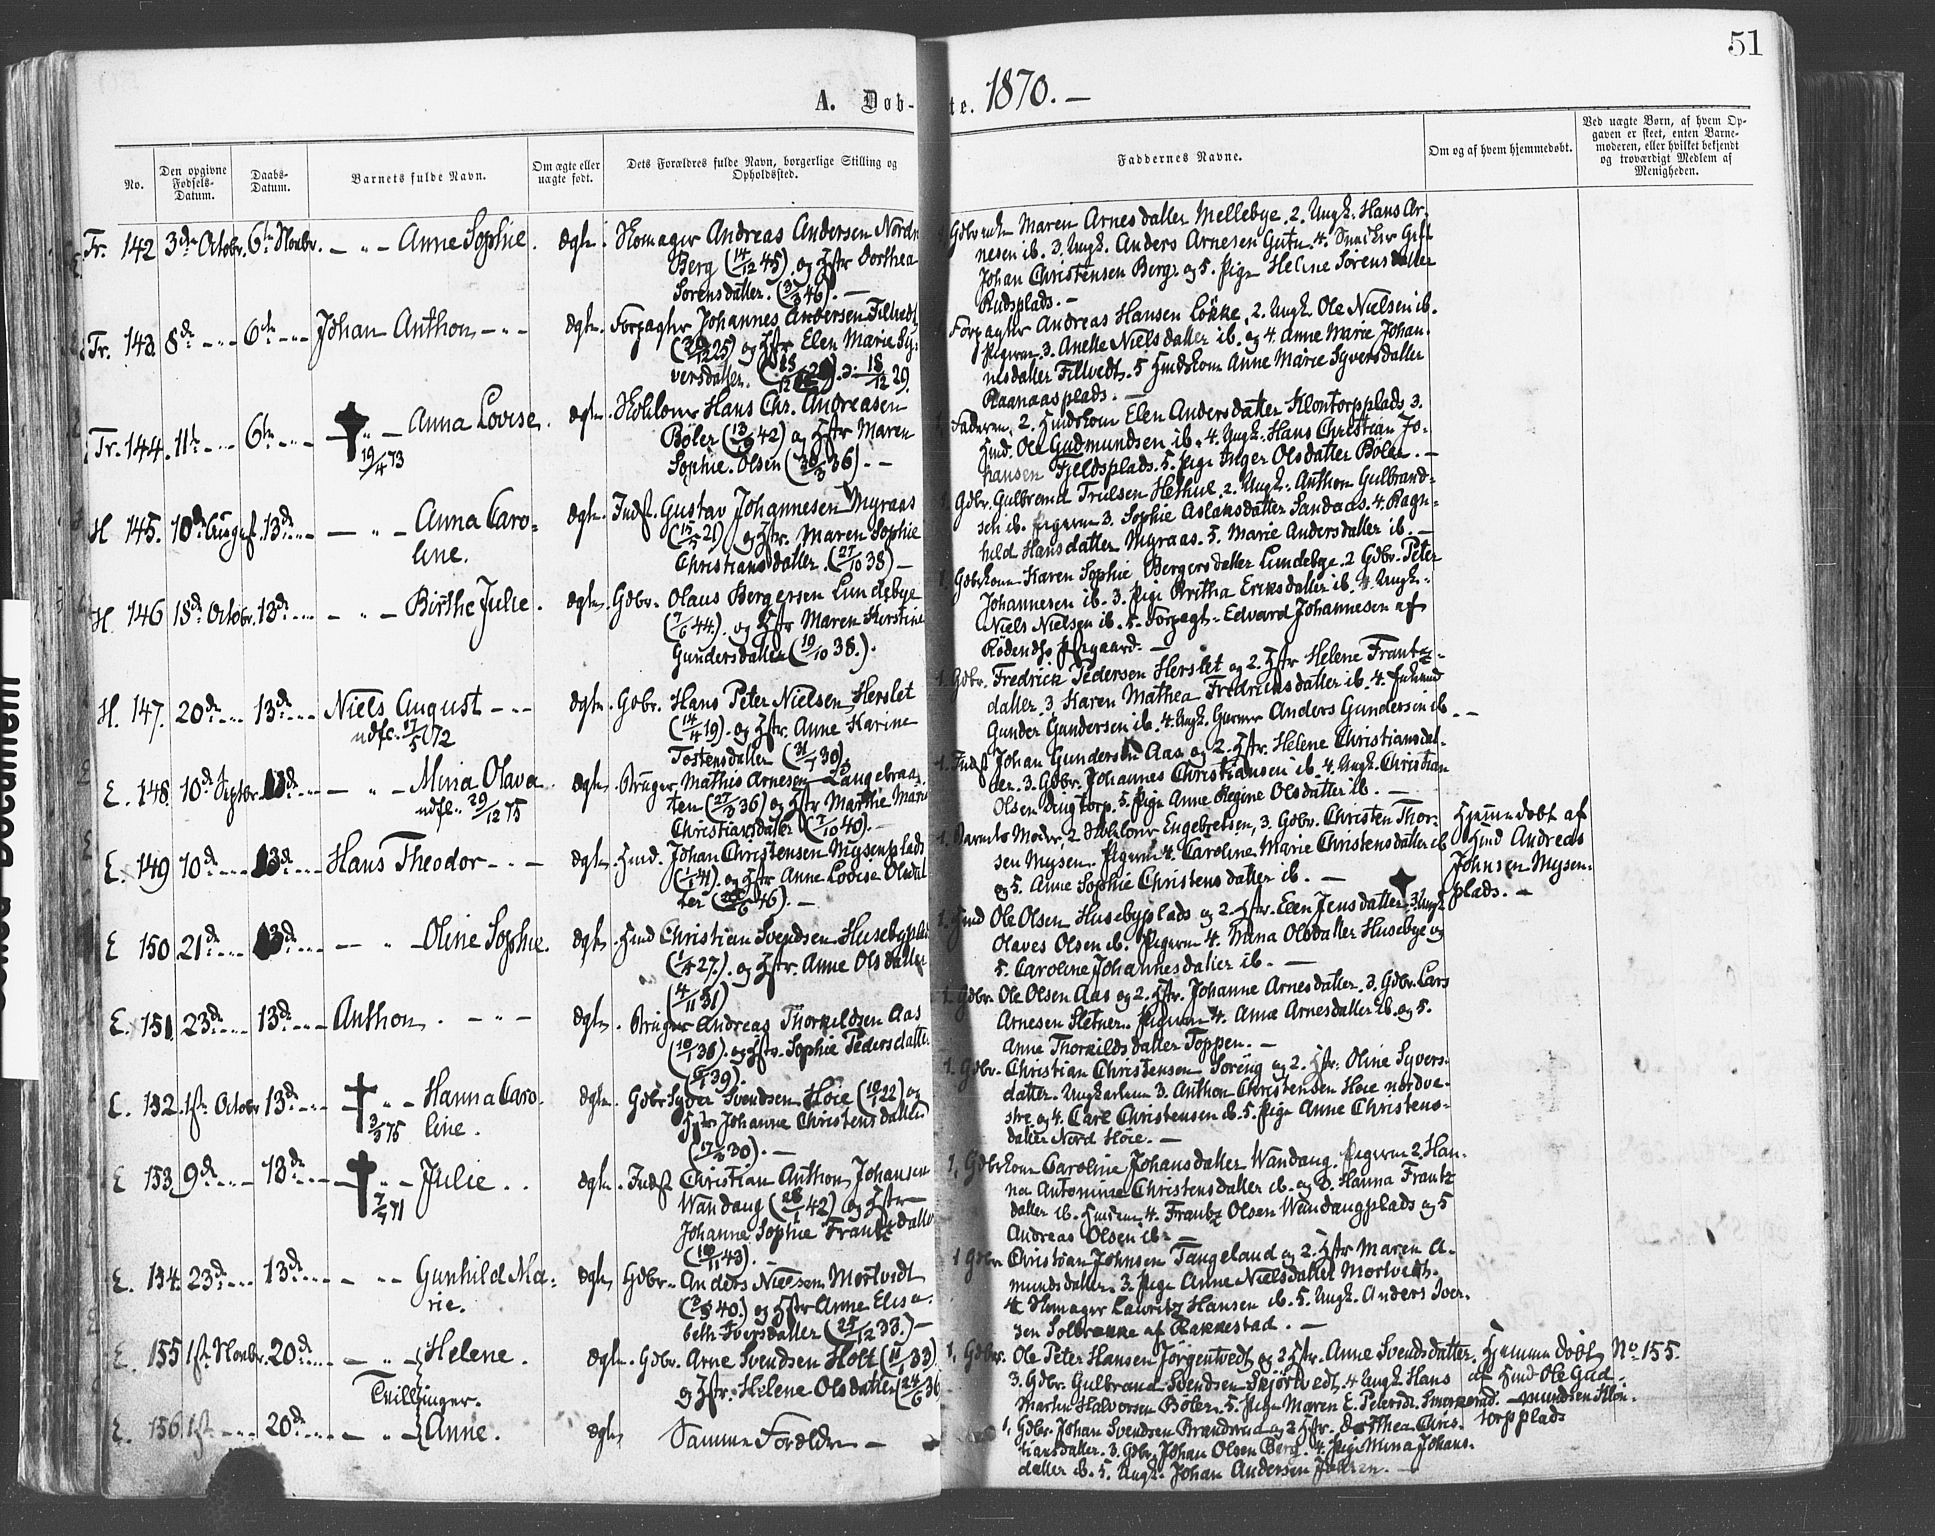 51
A. Døb-
te. 1870. —
No.
Den opgivne Fødsels-Datum.
Daabs-Datum.
Barnets fulde Navn.
Om ægte eller uægte født.
Dets Forældres fulde Navn, borgerlige Stilling og Opholdssted.
Faddernes Navne.
Om og af hvem hjemmedøbt.
Ved uægte Børn, af hvem Opgaven er skeet, enten Barnemoderen, eller hvilket bekjendt og troværdigt Medlem af Menigheden.
Tr. 142 3de Octobr. 6te Novbr. — " — Anne Sophie. ægte.
Skomager Andreas Andersen Nordre
Berg (14/12 45). og Hstr Dorthea
Sørensdatter. (3/3 46). —
Maren Arnesdatter Mellebye. 2. Ungk. Hans Ar-
nesen ib. 3. Ungk. Anders Arnesen Gutu. 4. Snedker
Johan Christensen Berg. og 5. Pige Helene Sørensdatter
Rudsplads. —
Tr. 143 8de 6te Johan Anthon ægte.
Forpagter Johannes Andersen Filtvedt
og Hstr Elen Marie Sy-
versdatter. 18/12 29.
Forpagter Andreas Hansen Løkke. 2. Ungk. Ole Nielsen ib.
Pigerne 3. Anette Nielsdatter ib. og 4. Anne Marie Johan-
nesdatter Filtvedt. 5 Huuskone Anne Marie Syversdatter
Raanaasplads. —
Tr. 144. 11te 6te Anna Lovise. ægte.
19/4 73
Hans Chr. Andreasen
Bøler (13/9 42) og Hstr Maren
Sophie Olsen (30/3 36). —
1. Faderen, 2. Huuskone Elen Andersdatter Klontorpplads 3.
Huusm. Ole Gudmundsen ib. 4. Ungk. Hans Christian Jo-
hansen Fjeldsplads. 5. Pige Inger Olsdatter Bøler. —
H 145. 10de August. 13de — " — Anna Caro-
line. ægte.
Inds. Gustav Johannesen Myraas
og Hstr. Maren Sophie
Christiansdatter. (27/10 38) —
1. Gdbr. Gulbrand Truelsen Hethue. 2. Ungk. Anthon Gulbrand-
sen ib. Pigerne 3. Sophie Aslaksdatter Sandaas. 4. Ragn-
hild Hansdatter Myraas. 5. Marie Andersdatter ib. —
H. 146 18de Octobr. 13de — " — Birthe Julie. ægte.
Gdbr. Olaus Bergersen Lundebye
(7/6 44). og Hstr Maren Kerstine
Gundersdatter (19/10 38.).
1. Gdbrkone Karen Sophie Bergersdatter Lundebye. 2 Gdbr. Peter
Johannesen ib. 3. Pige Eriksdatter ib. 4. Ungk.
Niels Nielsen ib. 5. Forpagt. Edvard Johannesen af
Rødenæs Prgaard. —
H. 147. 20de 13de Niels August ægte.
udfl. 17/5 72
Gdbr. Hans Peter Nielsen Herslet
(14/4 19). og Hstr. Anne Karine
Tostensdatter (31/1 30).
1. Gdbr. Fredrick Pedersen Herslet og 2. Hstr Helene Frantz-
datter. 3. Karen Mathea Fredricksdatter ib. 4.
Gunder Gundersen ib. Anders Gundersen ib. —
E. 148 10de Septbr. 13de — " — Mina Olava ægte.
udfl. 29/12 75
Bruger Mathis Arnesen Langebraa-
ten (27/3 36) og Hstr Marthe Marie
Christiansdatter (7/10 40). —
1. Inds. Johan Gundersen Aas og 2. Hstr. Helene Christiansdat-
ter. 3. Gdbr. Johannes Christiansen ib. 4. Ungk. Christian
Olsen Krugtorp. 5. Pige Anne Regine Olsdatter ib. —
E. 149 10de 13de Hans Theodor ægte.
Huusm. Johan Christensen Mysenplads
(1/1 41). og Hstr Anne Lovise Olsdat-
ter —
1. Barnets Moder, 2. Engebretsen, 3. Gdbr. Christen Thor-
sen Mysen. Pigerne 4. Caroline Marie Christensdatter ib
og 5. Anne Sophie Christensdatter ib. —
Hjemmedøbt af
Huusmd Andreas
Johnsen Mysen-
plads. —
E 150. 21de 13de — " — Oline Sophie. ægte
Huusmd Christian Svendsen Husebyplads
(1/4 27.). og Hstr. Anne Olsdatter
(4/11 31)
1. Huusmd Ole Olsen Husebyplads og 2. Hstr. Elen Jensdatter. 3. Ungk.
Olaves Olsen ib. Pigerne 4. Mina Olsdatter Husebye og
5. Caroline Johannesdatter ib. —
E. 151. 23de 13de Anthon. ægte.
Bruger Andreas Thorkildsen Aas
(10/1 36). og Hstr. Sophie Pedersdatter
1. Gdbr. Ole Olsen Aas og 2. Hstr. Johanne Arnesdatter. 3. Gdbr. Lars
Arnesen Sletner. Pigerne 4. Anne Arnesdatter ib. og 5.
Anne Thorkildsdatter Toppen. —
E. 152. 1ste Octobr 13de Hanna Caro-
line. ægte.
3/3 75
Gdbr Syver Svendsen Høie og
Hstr Johanne Christensdatter
(17/3 30). —
1. Gdbr. Christian Christensen Soreng og 2. Hstr. Oline Syvers-
datter. Ungkarlene 3. Anthon Christensen Høie nordve-
stre og 4. Carl Christensen ib. 5. Pige Anne Christens-
datter Nord Høie. —
E 153 9de 13de Julie. ægte.
7/7 71
Inds Christian Anthon Johansen
Wandaug (28/1 42) og Hstr
Johanne Sophie Frantzdatter
(10/11 43). —
1. Gdbrkone Caroline Johansdatter Wandaug. Pigerne 2. Han-
na Antonine Christensdatter ib. og 3. Hanna Frantz-
datter ib. 4. Frantz Olsen Wandaugplads og 5
Andreas Olsen ib. —
E. 154. 23de 13de Gunhild Ma-
rie. ægte
Gdbr. Anders Nielsen Mortvedt
og Hstr Anne Elisa-
beth Iversdatter (25/12 33.) —
1 Gdbr. Christian Johnsen Tangeland og 2. Hstr Maren A-
mundsdatter. 3. Pige Anne Nielsdatter Mortvedt.
4. Skomager Lauritz Hansen ib. 5. Ungk. Anders Iver-
sen Solbrække af Rakkestad. —
E. 155 1ste Novbr. 20de — " — Helene. ægte.
Tvillinger.
Gdbr. Arne Svendsen Holt (11/1 33)
og Hstr. Helene Olsdatter (24/6 36
1. Gdbr. Ole Peter Hansen Jørgentvedt og 2. Hstr. Anne Svendsdatter.
3. Gdbr. Gulbrand Svendsen Skjørtvedt. 4 Ungk Hans
Martin Halvorsen Bøler. 5. Pige Maren E. Petersdt.
Hjemmedøbt
af Huusmd Ole Gud-
mundsen Klon-
torpplads
No 155.
E. 156. 1ste 20de — " — Anne. ægte
Samme Forældre —
1. Gdbr. Johan Svendsen Brandsrud og 2. Hstr. Dorthea Chris-
tiansdatter. 3. Gdbr. Johan Olsen Berg. 4. Pige Mina Johans-
datter ib. 5. Ungk. Johan Andersen —